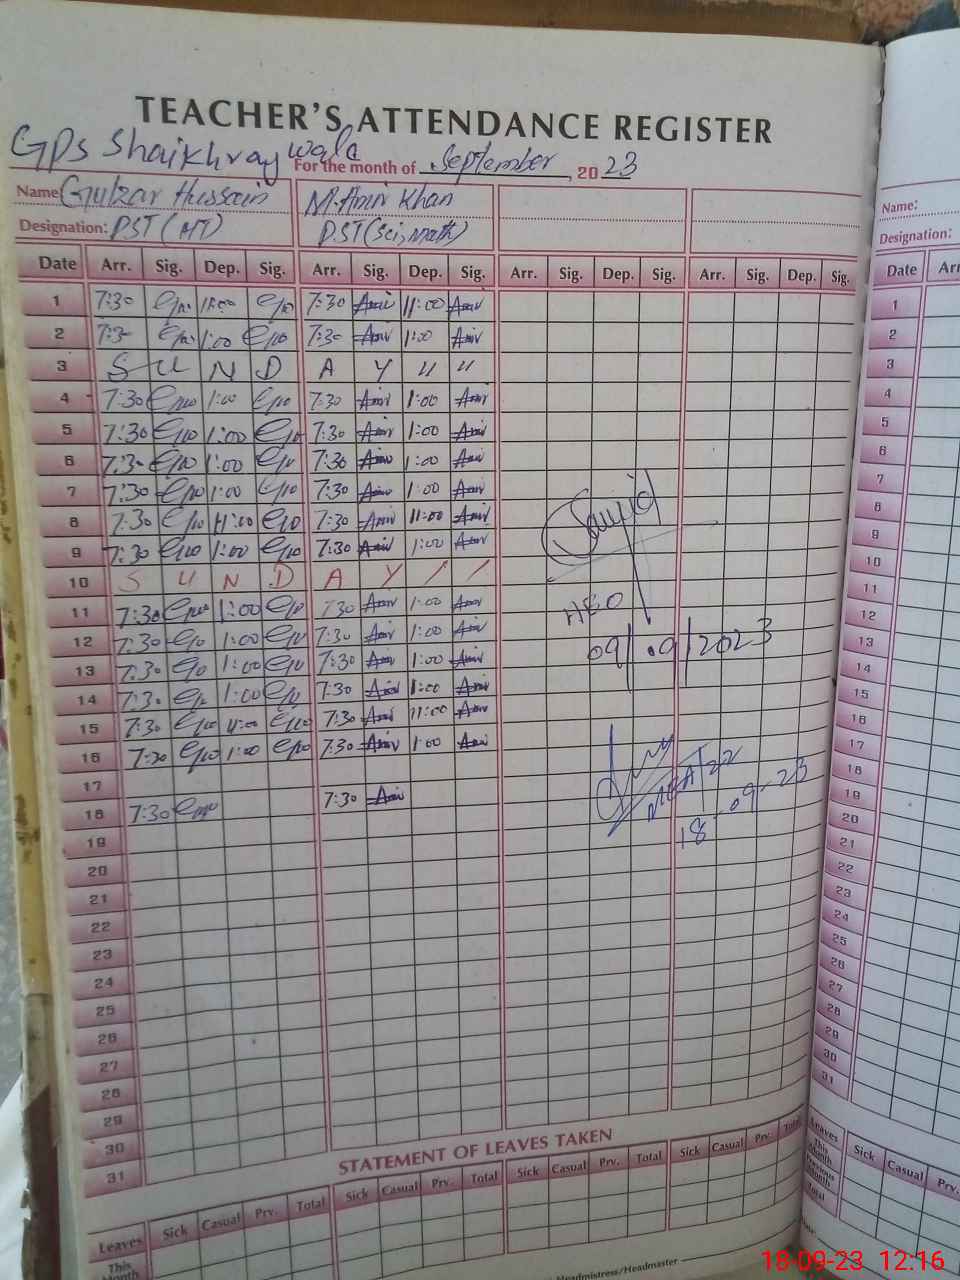 TEACHER'S ATTENDANCE REGISTER
GPS Shaikhray wala
For the month of September, 2023
Name: Gulzar Hussain M. Amir Khan
Designation: PST (MT) PST (Sci, Math)
Date Arr. Sig. Dep. Sig. Arr. Sig. Dep. Sig. Arr. Sig. Dep. Sig. Arr. Sig. Dep. Sig.
1 7:30 11:00 7:30 Amir 11:00 Amir
2 7:30 1:00 7:30 Amir 1:00 Amir
3 S U N D A Y " "
4 7:30 1:00 7:30 Amir 1:00 Amir
5 7:30 1:00 7:30 Amir 1:00 Amir
6 7:30 1:00 7:30 Amir 1:00 Amir
7 7:30 1:00 7:30 Amir 1:00 Amir
8 7:30 11:00 7:30 Amir 11:00 Amir
9 7:30 1:00 7:30 Amir 1:00 Amir
10 S U N D A Y / /
11 7:30 1:00 7:30 Amir 1:00 Amir
12 7:30 1:00 7:30 Amir 1:00 Amir
13 7:30 1:00 7:30 Amir 1:00 Amir
14 7:30 1:00 7:30 Amir 1:00 Amir
15 7:30 11:00 7:30 Amir 11:00 Amir
16 7:30 1:00 7:30 Amir 1:00 Amir
17
18 7:30 7:30 Amir
19
20
21
22
23
24
25
26
27
28
29
30
31
09/09/2023
MEA 22
18-09-23
STATEMENT OF LEAVES TAKEN
Leaves Sick Casual Prv. Total Sick Casual Prv. Total Sick Casual Prv. Total Sick Casual Prv. Total
This Month
Headmistress/Headmaster
Name:
Designation:
Date Arr
1
2
3
4
5
6
7
8
9
10
11
12
13
14
15
16
17
18
19
20
21
22
23
24
25
26
27
28
29
30
31
Leaves Sick Casual Prv.
This Month
Previous Month
Total
18-09-23 12:16